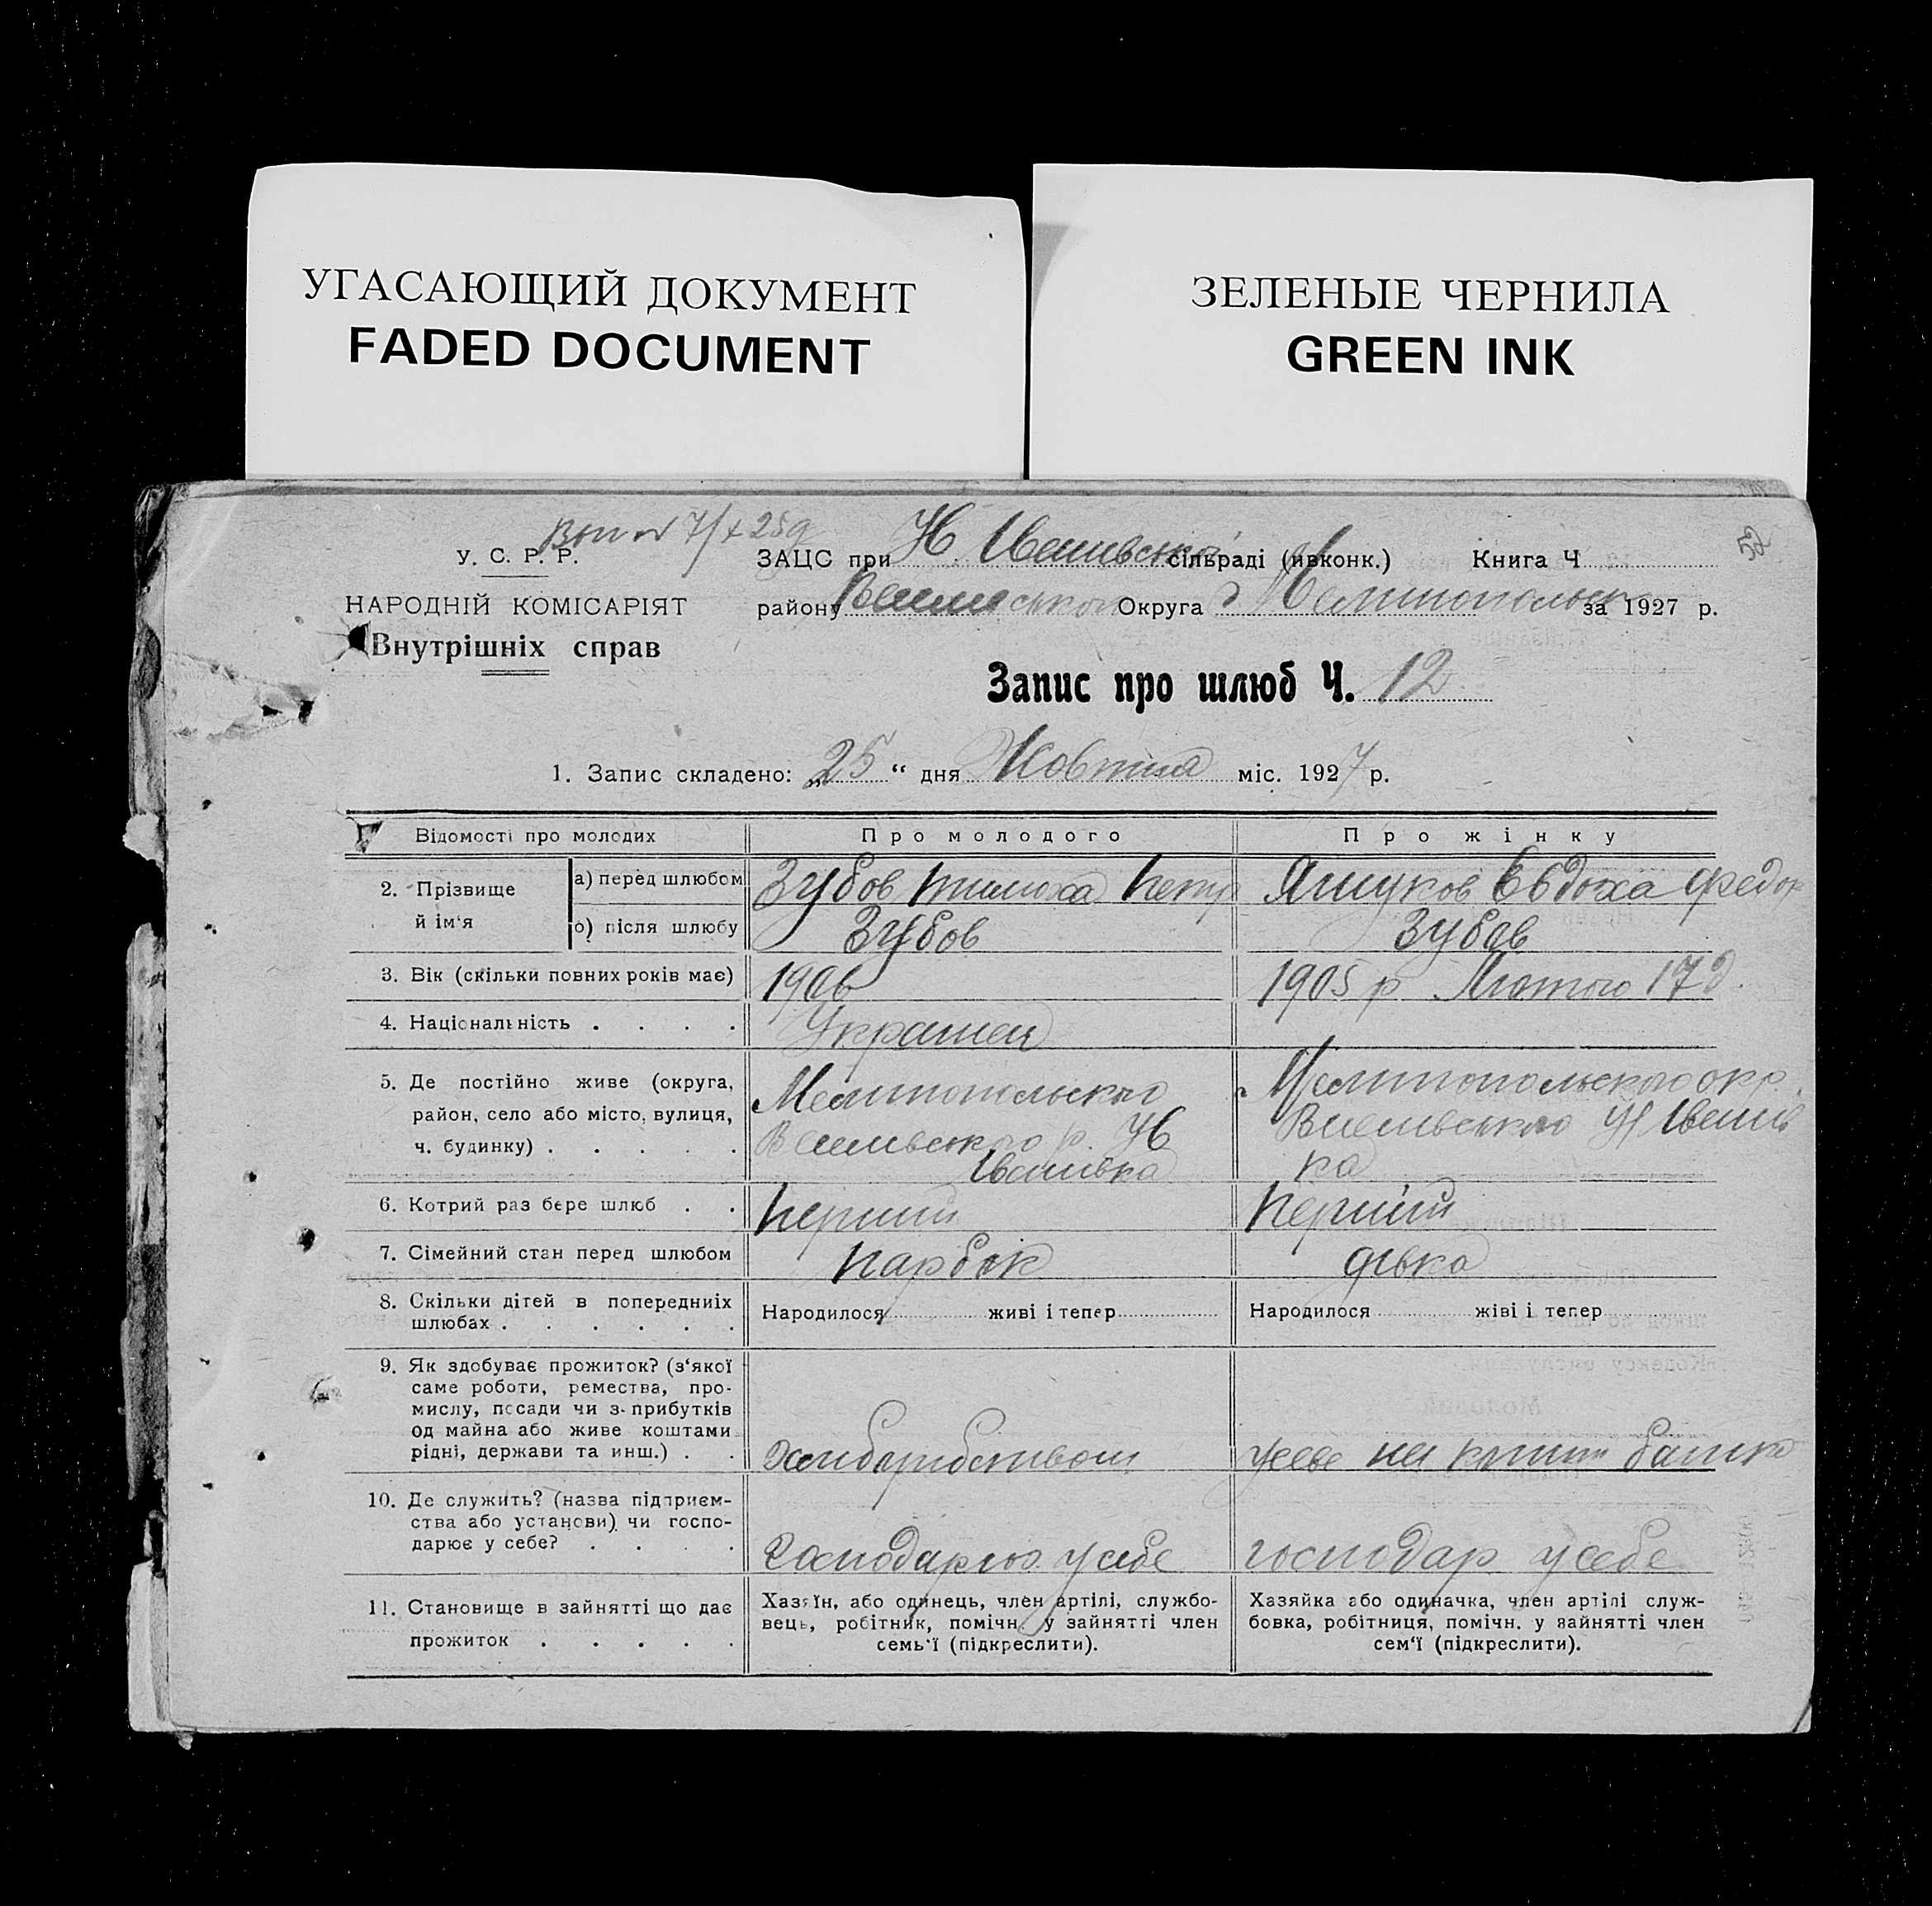 УГАСАЮЩИЙ ДОКУМЕНТ
FADED DOCUMENT
ЗЕЛЕНЫЕ ЧЕРНИЛА
GREEN INK
52
У. С. Р. Р.
НАРОДНІЙ КОМІСАРІЯТ
Внутрішніх справ
ЗАЦС при Н сільраді (ивконк.) Книга Ч
району Округа за 1927 р.
Запис про шлюб Ч. 12
1. Запис складено: „25“ дня Жовтня міс. 1927 р.
Відомості про молодих
Про молодого
Про жінку
2. Прізвище й ім‘я
а) перед шлюбом
Зубов Тимоха Петр
Евдоха Федор
о) після шлюбу
Зубов
Зубов
3. Вік (скільки повних років має)
1906
1905 р Лютого 17 д.
4. Національність . . . .
Украінец
5. Де постійно живе (округа,
район, село або місто, вулиця,
ч. будинку) . . . . .
Мелитопольского
р. Н
Іванівка
Мелитопольского окр.
Н Іванів
ка
6. Котрий раз бере шлюб . .
Перший
Перший
7. Сімейний стан перед шлюбом
Парбок
дівка
8. Скільки дітей в попередниіх
шлюбах . . . . . .
Народилося живі і тепер
Народилося жіві і тепер
9. Як здобуває прожиток? (з‘якої
саме роботи, ремества, про-
мислу, посади чи з-прибутків
од майна або живе коштами
рідні, держави та инш.) . .
хлиборобством
живе на кошти батька
10. Де служить? (назва підприєм-
ства або установи) чи госпо-
дарює у себе? . . . .
Господарює у себе
господар у себе
11. Становище в зайнятті що дає
прожиток . . . . .
Хазяїн, або одинець, член артілі, службо-
вець, робітник, помічн. у зайнятті член
семь‘ї (підкреслити).
Хазяйка або одиначка, член артілі служ-
бовка, робітниця, помічн. у зайнятті член
сем‘ї (підкреслити).